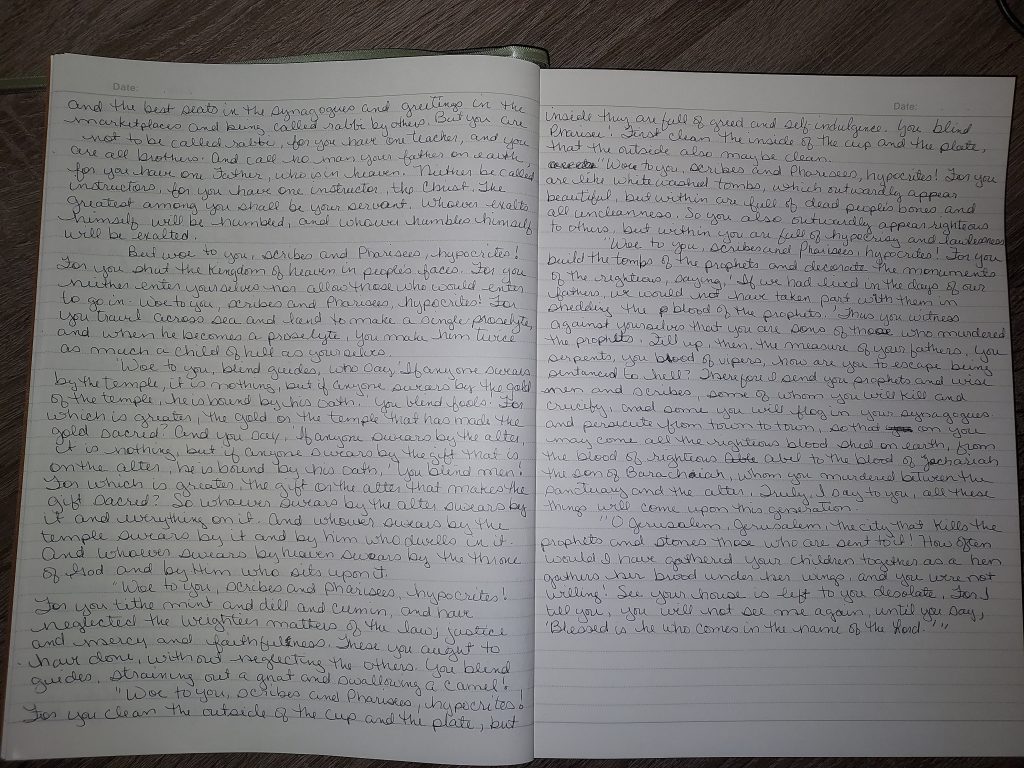 Date:
and the best seats in the synagogues and greetings in the
marketplaces and being called rabbi by others. But you are
not to be called rabbi, for you have one teacher, and you
are all brothers. And call no man your father on earth,
for you have one Father, who is in heaven. Neither be called
instructors, for you have one instructor, the Christ. The
greatest among you shall be your servant. Whoever exalts
himself will be humbled, and whoever humbles himself
will be exalted.
But woe to you, scribes and Pharisees, hypocrites!
For you shut the kingdom of heaven in people's faces. For you
neither enter yourselves nor allow those who would enter
to go in. Woe to you, scribes and Pharisees, hypocrites! For
you travel across sea and land to make a single proselyte,
and when he becomes a proselyte, you make him twice
as much a child of hell as yourselves.
"Woe to you, blind guides, who say, 'If anyone swears
by the temple, it is nothing, but if anyone swears by the gold
of the temple, he is bound by his oath.' You blind fools! For
which is greater, the gold or the temple that has made the
gold sacred? And you say, 'If anyone swears by the alter,
it is nothing, but if anyone swears by the gift that is
on the alter, he is bound by his oath,' you blind men!
For which is greater, the gift or the alter that makes the
gift sacred? So whoever swears by the alter swears by
it and everything on it. And whoever swears by the
temple swears by it and by him who dwells in it.
And whoever swears by heaven swears by the throne
of God and by Him who sits upon it.
"Woe to you, scribes and Pharisees, hypocrites!
For you tithe mint and dill and cumin, and have
neglected the weightier matters of the law; justice
and mercy and faithfulness. These you aught to
have done, without neglecting the others. You blind
guides, straining out a gnat and swallowing a camel!
"Woe to you, scribes and Pharisees, hypocrites!
For you clean the outside of the cup and the plate, but
Date:
inside they are full of greed and self-indulgence. You blind
Pharisee! First clean the inside of the cup and the plate,
that the outside also may be clean.
"Woe to you, scribes and Pharisees, hypocrites! For you
are like whitewashed tombs, which outwardly appear
beautiful, but within are full of dead people's bones and
all uncleanness. So you also outwardly appear righteous
to others, but within you are full of hypocrisy and lawlessness
"Woe to you, scribes and Pharisees, hypocrites! For you
build the tombs of the prophets and decorate the monuments
of the righteous, saying, 'If we had lived in the days of our
fathers, we would not have taken part with them in
shedding the blood of the prophets.' Thus you witness
against yourselves that you are sons of those who murdered
the prophets. Fill up, then, the measure of your fathers, you
serpents, you blood of vipers, how are you to escape being
sentanced to hell? Therefore I send you prophets and wise
men and scribes, some of whom you will kill and
crucify, and some you will flog in your synagogues
and persecute from town to town, so that on you
may come all the righteous blood shed on earth, from
the blood of righteous abel to the blood of Zechariah
the son of Barachaiah, whom you murdered between the
sanctuary and the alter. Truly, I say to you, all these
things will come upon this generation.
"O Jerusalem, Jerusalem, the city that kills the
prophets and stones those who are sent to it! How often
would I have gathered your children together as a hen
gathers her brood under her wings, and you were not
willing! See your house is left to you desolate, For I
tell you, you will not see me again, until you say,
'Blessed is he who comes in the name of the Lord.'"